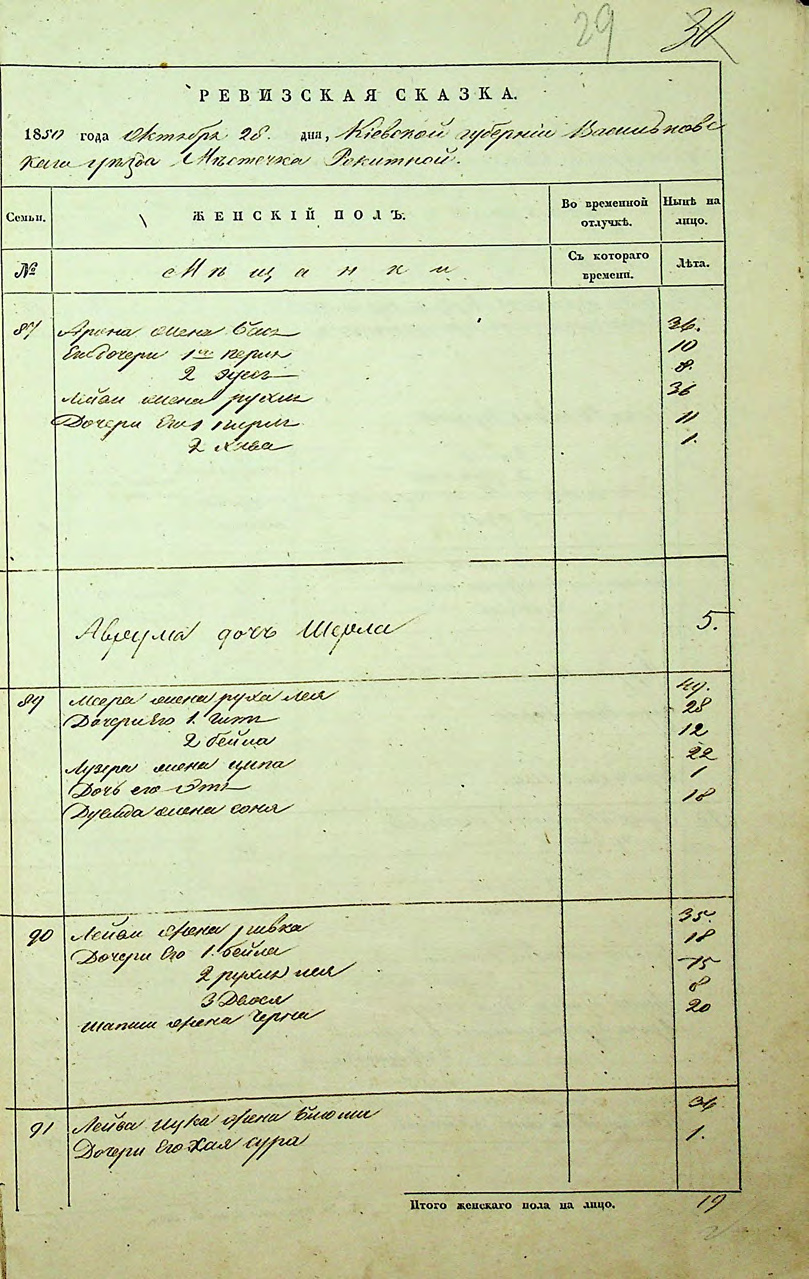 29 30
РЕВИЗСКАЯ СКАЗКА.
1850 года Октября 28. дня, Кіевской губерніи Васильковс
каго уѣзда Мѣстечка Рокитной.
Семьи. ЖЕНСКІЙ ПОЛЪ. Во временной отлучкѣ. Нынѣ на лицо.
№ Мѣщанки Съ котораго времени. Лѣта.
87 Арона жена Бася 36.
Его дочери 1ая Перля 10
2 8.
Лейбы жена Рухля 36
Дочери Его 1 Перля 11
2 Хава 1.
Аврума дочь Шерла 5.
89 Меера жена Руха Лея 49.
Дочери Его 1. Гитя 28
2 Бейла 12
Лузера жена Ципа 22
Дочь его 1
жена Соня 18
90 Лейбы жена Ривка 35.
Дочери Его 1. Бейла 18
2 Рухля Лея 15
3 Двося 8
Шапши жена Черна 20
91 Лейба Ицка жена 34
Дочери Его Хая Сура 1.
Итого женскаго пола на лицо. 19